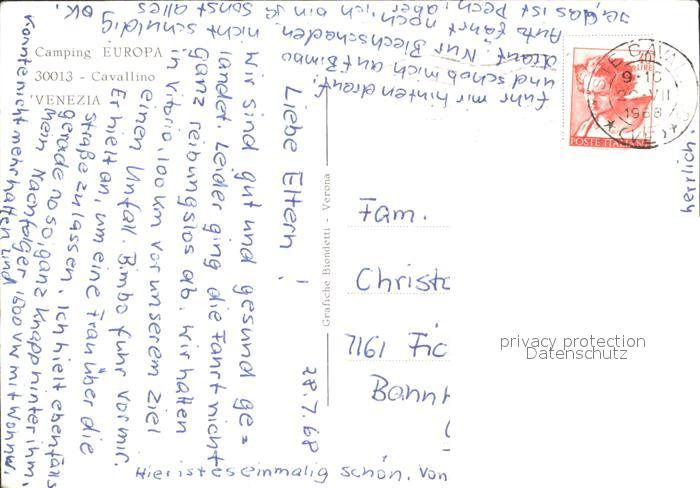 Camping EUROPA
30013 - Cavallino
VENEZIA
Grafiche Biondetti - Verona
28.7.68
Liebe Eltern!
Wir sind gut und gesund ge=
landet. Leider ging die Fahrt nicht
ganz reibungslos ab. Wir hatten
in Vitorio, 100 km vor unserem Ziel
einen Unfall. Bimbo fuhr vor mir.
Er hielt an, um eine Frau über die
Straße zu lassen. Ich hielt ebenfalls
gerade noso, ganz knapp hinter ihm,
Mein Nachfolger, 1600 VW mit Wohnw.
konnte nicht mehr halten und
fuhr mir hinten drauf.
und schob mich auf Bimbo
drauf. Nur Blechschaden.
Auto fährt noch, ich bin ja
nicht schuldig
ja, das ist Pech, aber
sonst alles
OK.
Hier ist es einmalig schön. Von
Fam.
Christo
7161 Fic
Bahnh
POSTE ITALIANE
LIRE
CAVALL
9-10
VII
1968
(VE)
privacy protection
Datenschutz